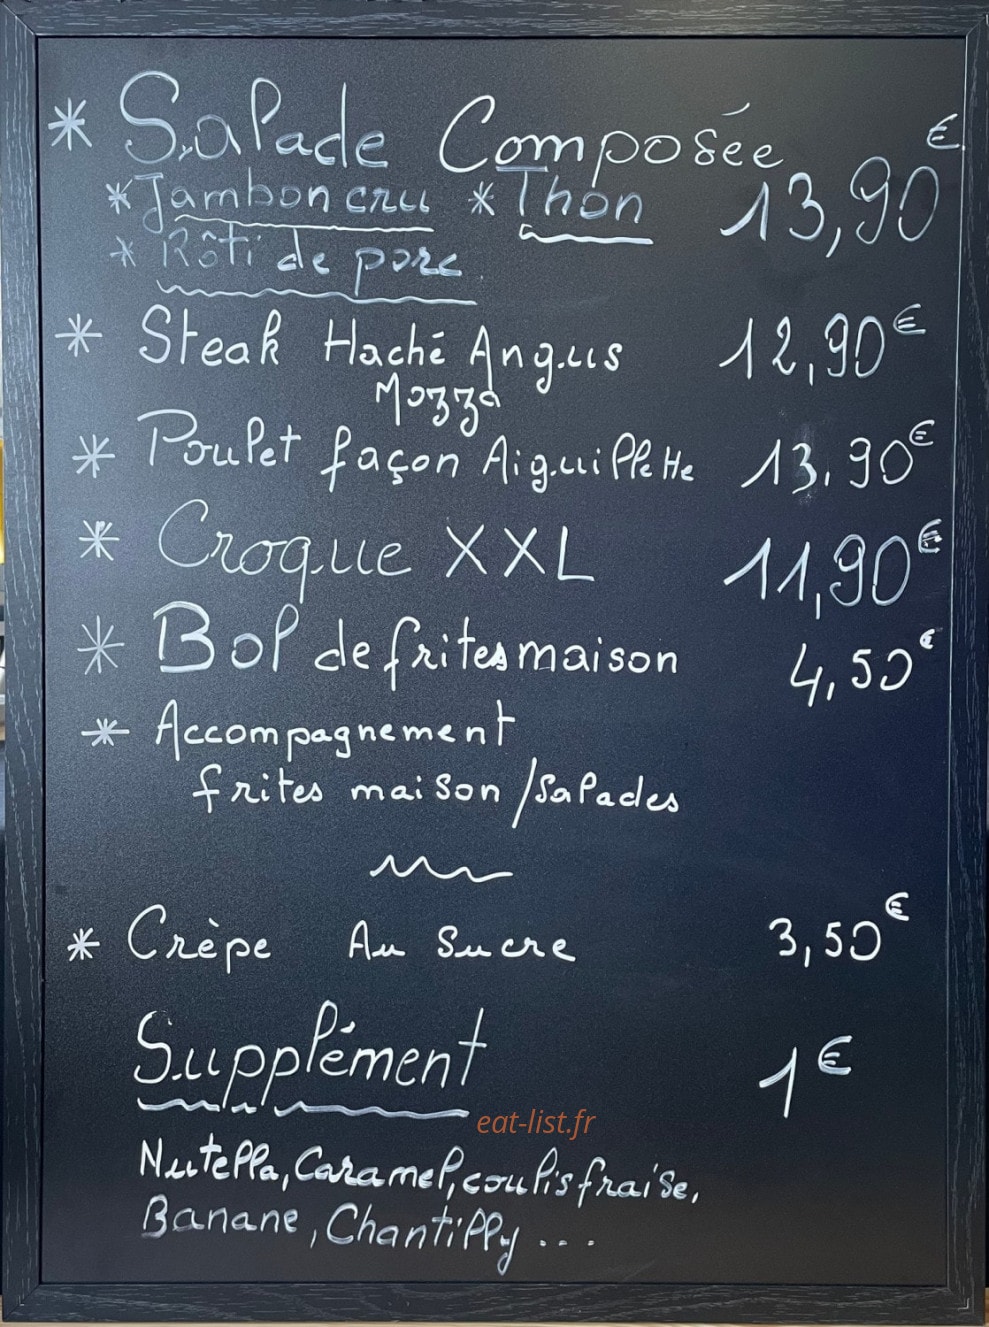 * Salade Composée
* Jambon cru * Thon 13,90€
* Rôti de porc
* Steak Haché Angus 12,90€
Mozza
* Poulet façon Aiguillette 13.90€
* Croque XXL 11,90€
* Bol de frites maison 4,50€
* Accompagnement
frites maison/salades
* Crèpe Au Sucre 3,50€
Supplément 1€
eat-list.fr
Nutella, Caramel, coulis fraise,
Banane, Chantilly...